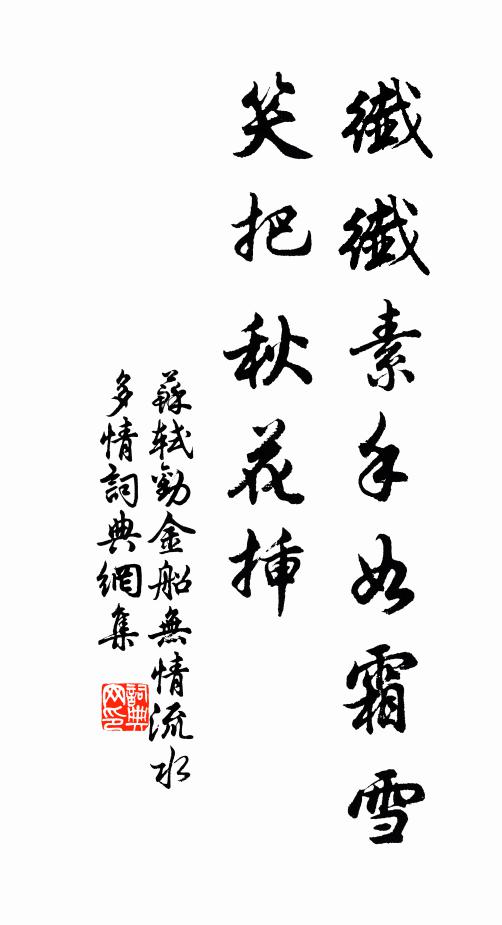 纖纖素手如霜雪
笑把秋花插
蘇軾勸金船無情流水
多情詞典網集
詞典
网印